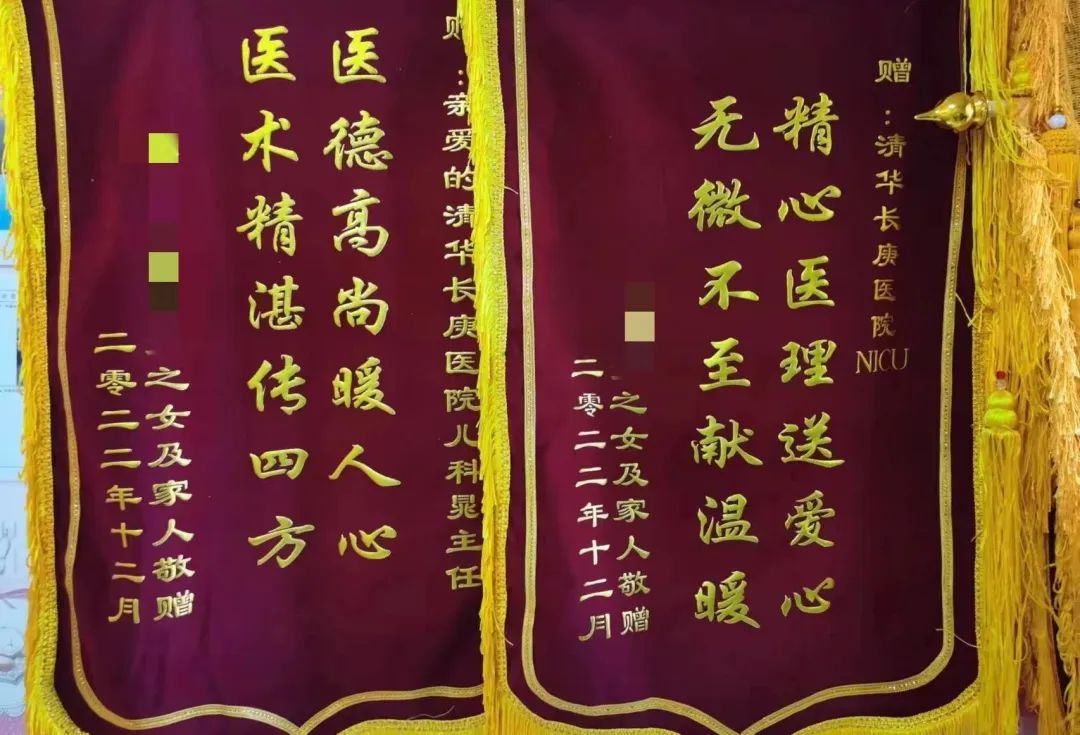 赠:清华长庚医院
NICU
精心医理送爱心
无微不至献温暖
之女及家人敬赠
二零二二年十二月
赠:亲爱的清华长庚医院儿科晁主任
医德高尚暖人心
医术精湛传四方
之女及家人敬赠
二零二二年十二月